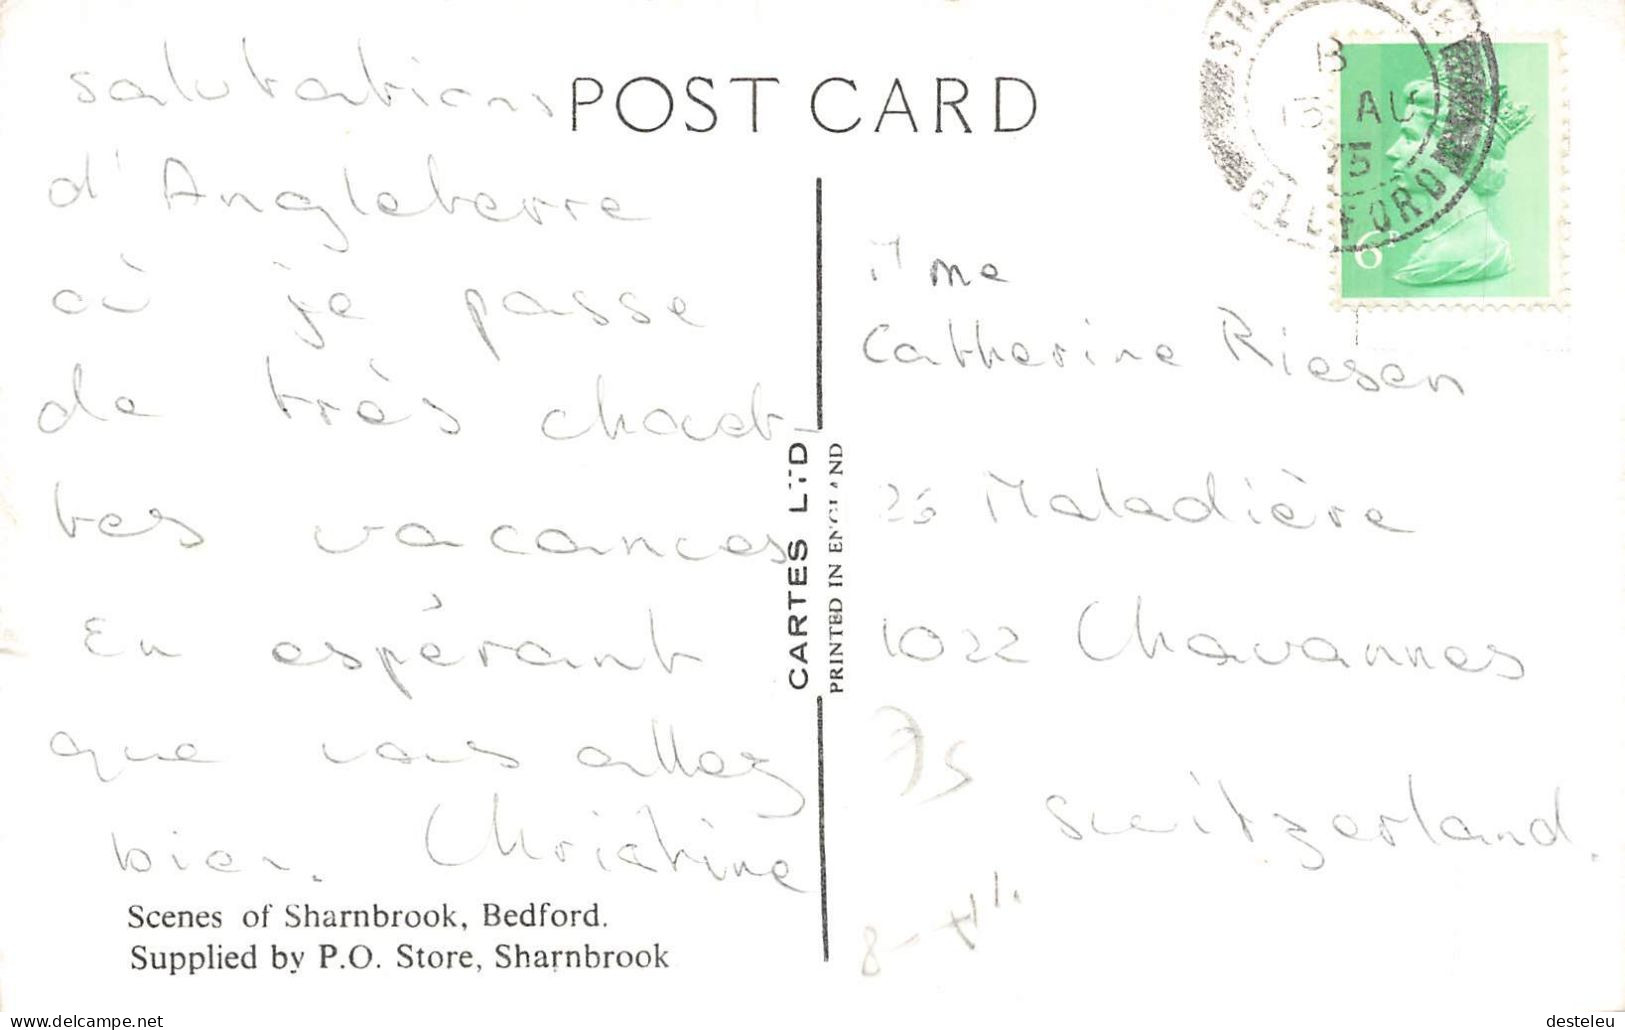 salutations
d'Angleterre
où je passe
de très chouet-
tes vacances
En espérant
que vous allez
bien. Christine
Scenes of Sharnbrook, Bedford.
Supplied by P.O. Store, Sharnbrook
POST CARD
CARTES LTD
PRINTED IN ENGLAND
B
AU
75
6P
Mme
Catherine Riesen
Maladière
1022 Chavannes
Switzerland.
75
www.delcampe.net
desteleu